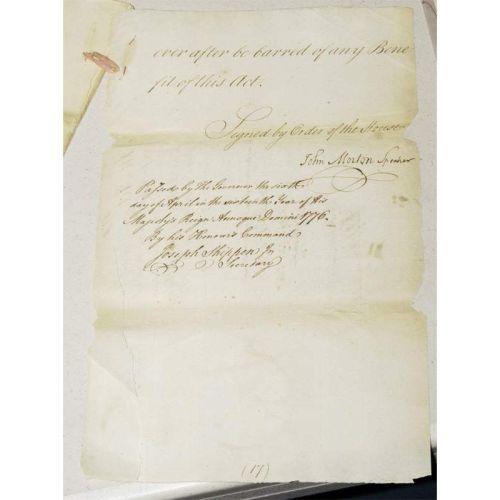 ever after be barred of any Bene
fit of this Act.
Signed by Order of the House
John Morton Speaker
Passed by the Governor the sixth
day of April in the sixteenth Year of His
Majestys Reign Annoque Domini 1776
By his Honours Command
Joseph Shippen Jr
Secretary
(17)